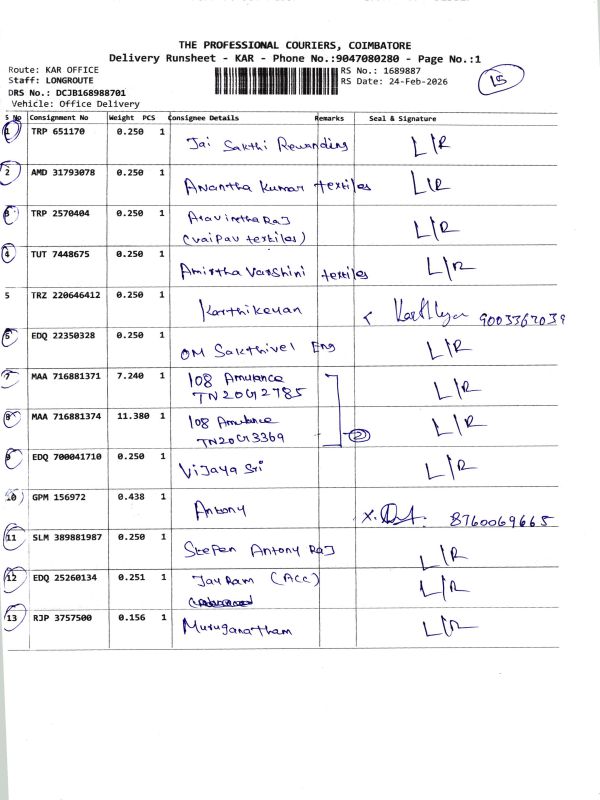 THE PROFESSIONAL COURIERS, COIMBATORE
Delivery Runsheet - KAR - Phone No.:9047080280 - Page No.:1
Route: KAR OFFICE
Staff: LONGROUTE
DRS No.: DCJB168988701
Vehicle: Office Delivery
RS No.: 1689887
RS Date: 24-Feb-2026
15
S No Consignment No Weight PCS Consignee Details Remarks Seal & Signature
1 TRP 651170 0.250 1 Jai Sakthi Rewinding L/R
2 AMD 31793078 0.250 1 Anantha Kumar textiles L/R
3 TRP 2570404 0.250 1 AravinthaRaJ L/R
(Vaipav textiles)
4 TUT 7448675 0.250 1 Amirtha Varshini textiles L/R
5 TRZ 220646412 0.250 1 Karthikeyan 9003367039
6 EDQ 22350328 0.250 1 OM Sakthivel Eng L/R
7 MAA 716881371 7.240 1 108 Amulance L/R
TN20G2785
8 MAA 716881374 11.380 1 108 Amulance L/R
TN20G3369 2
9 EDQ 700041710 0.250 1 Vijaya Sri L/R
10 GPM 156972 0.438 1 Antony 8760069665
11 SLM 389881987 0.250 1 Stefen Antony RaJ L/R
12 EDQ 25260134 0.251 1 JayRam (Acc) L/R
13 RJP 3757500 0.156 1 Muruganatham L/R